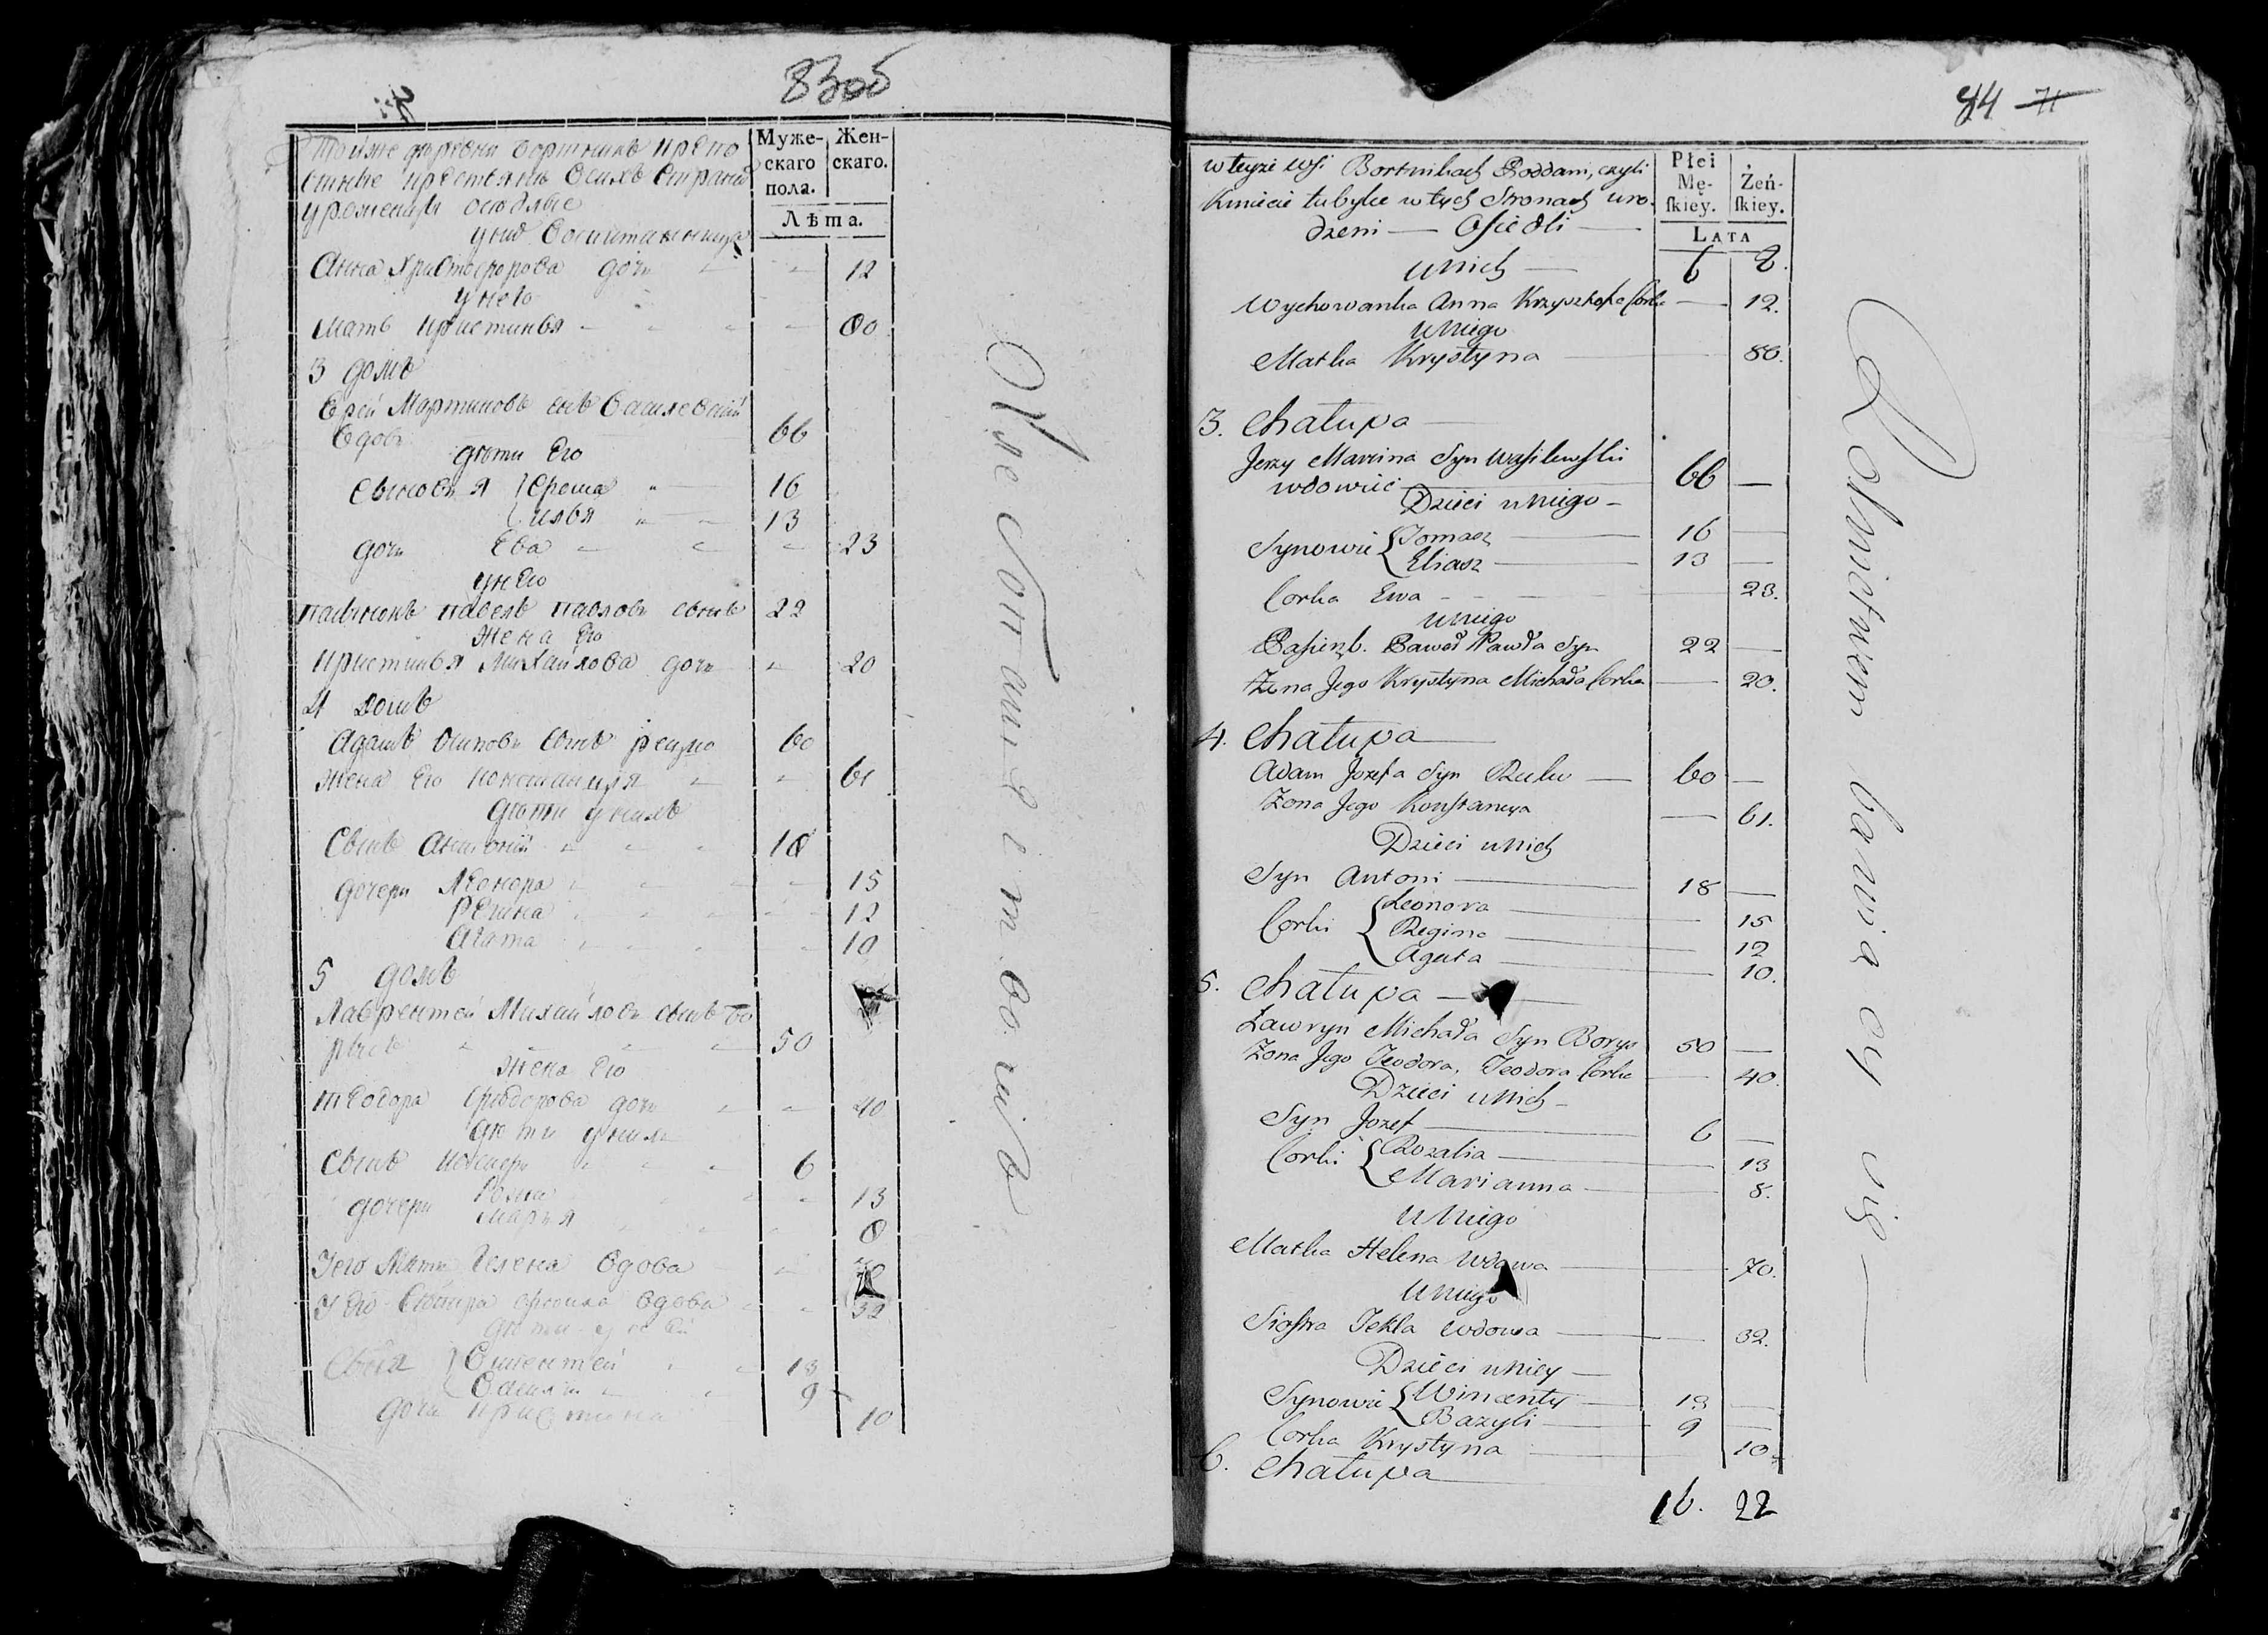 83об
Муже-
скаго
пола.
Жен-
скаго.
Лѣта.
Тойже деревни Бортникъ крѣпо
стные крестьяне
уроженцы осѣдлые
у нихъ Воспитанница
Анна Христофорова дочь 12
у него
Мать Кристинья 80
3 домъ
Мартиновъ сынъ Василевский
Вдовъ 66
дѣти Его
Сыновья { Фрома 16
Илья 13
дочь Ева 23
у него
пасынокъ павелъ павловъ сынъ 22
жена Его
Кристинья Михайлова дочь 20
4 домъ
Адамъ Осиповъ сынъ 60
жена Его Констанция 61
дѣти у нихъ
Сынъ Антоній 18
дочери Леонора 15
Регина 12
Агата 10
5 домъ
Лаврентей Михайловъ сынъ Бо
рысъ 50
жена Его
теодора Фиодорова дочь 40
дѣти у нихъ
Сынъ 6
дочери 13
Марья 8
Его Мать Гелена вдова 70
У Его Сестра вдова 32
дѣти у ней
Сыновья { Викентей 13
Василь 9
дочь Кристина 10
Хлебопашествомъ
84 71
Płci
Mę-
ſkiey.
Żeń-
ſkiey.
Lata
w teyże wsi Bortnikach Poddani, czyli
Kmiecie tubylce w tych Stronach uro-
dzeni — Osiedli —
u nich — 6 8.
Wychowanka Anna Krzysztofa Corka — 12.
u niego
Matka Krystyna 80.
3. Chałupa
Jerzy Marcina Syn Wasilewski
wdowiec 66 —
Dzieci u niego —
Synowie { Tomasz 16 —
Eliasz 13 —
Corka Ewa 23.
u niego
Pasierzb. Paweł Pawła Syn 22 —
Żona Jego Krystyna Michała Corka — 20.
4. Chałupa
Adam Jozefa Syn 60 —
Żona Jego Konstancya — 61.
Dzieci u nich
Syn Antoni 18 —
Corki { Leonora 15
Regina 12
Agata 10.
5. Chałupa —
Ławryn Michała Syn Borys 50 —
Żona Jego Teodora, Teodora Corka — 40.
Dzieci u nich —
Syn Jozef 6 —
Corki { Rozalia 13
Marianna 8.
u niego
Matka Helena Wdowa 70.
u niego
Siostra Tekla wdowa 32.
Dzieci u niey —
Synowie { Wincenty 13 —
Bazyli 9 —
Corka Krystyna 10.
6. Chałupa
16. 22
Rolnictwem bawiący się —